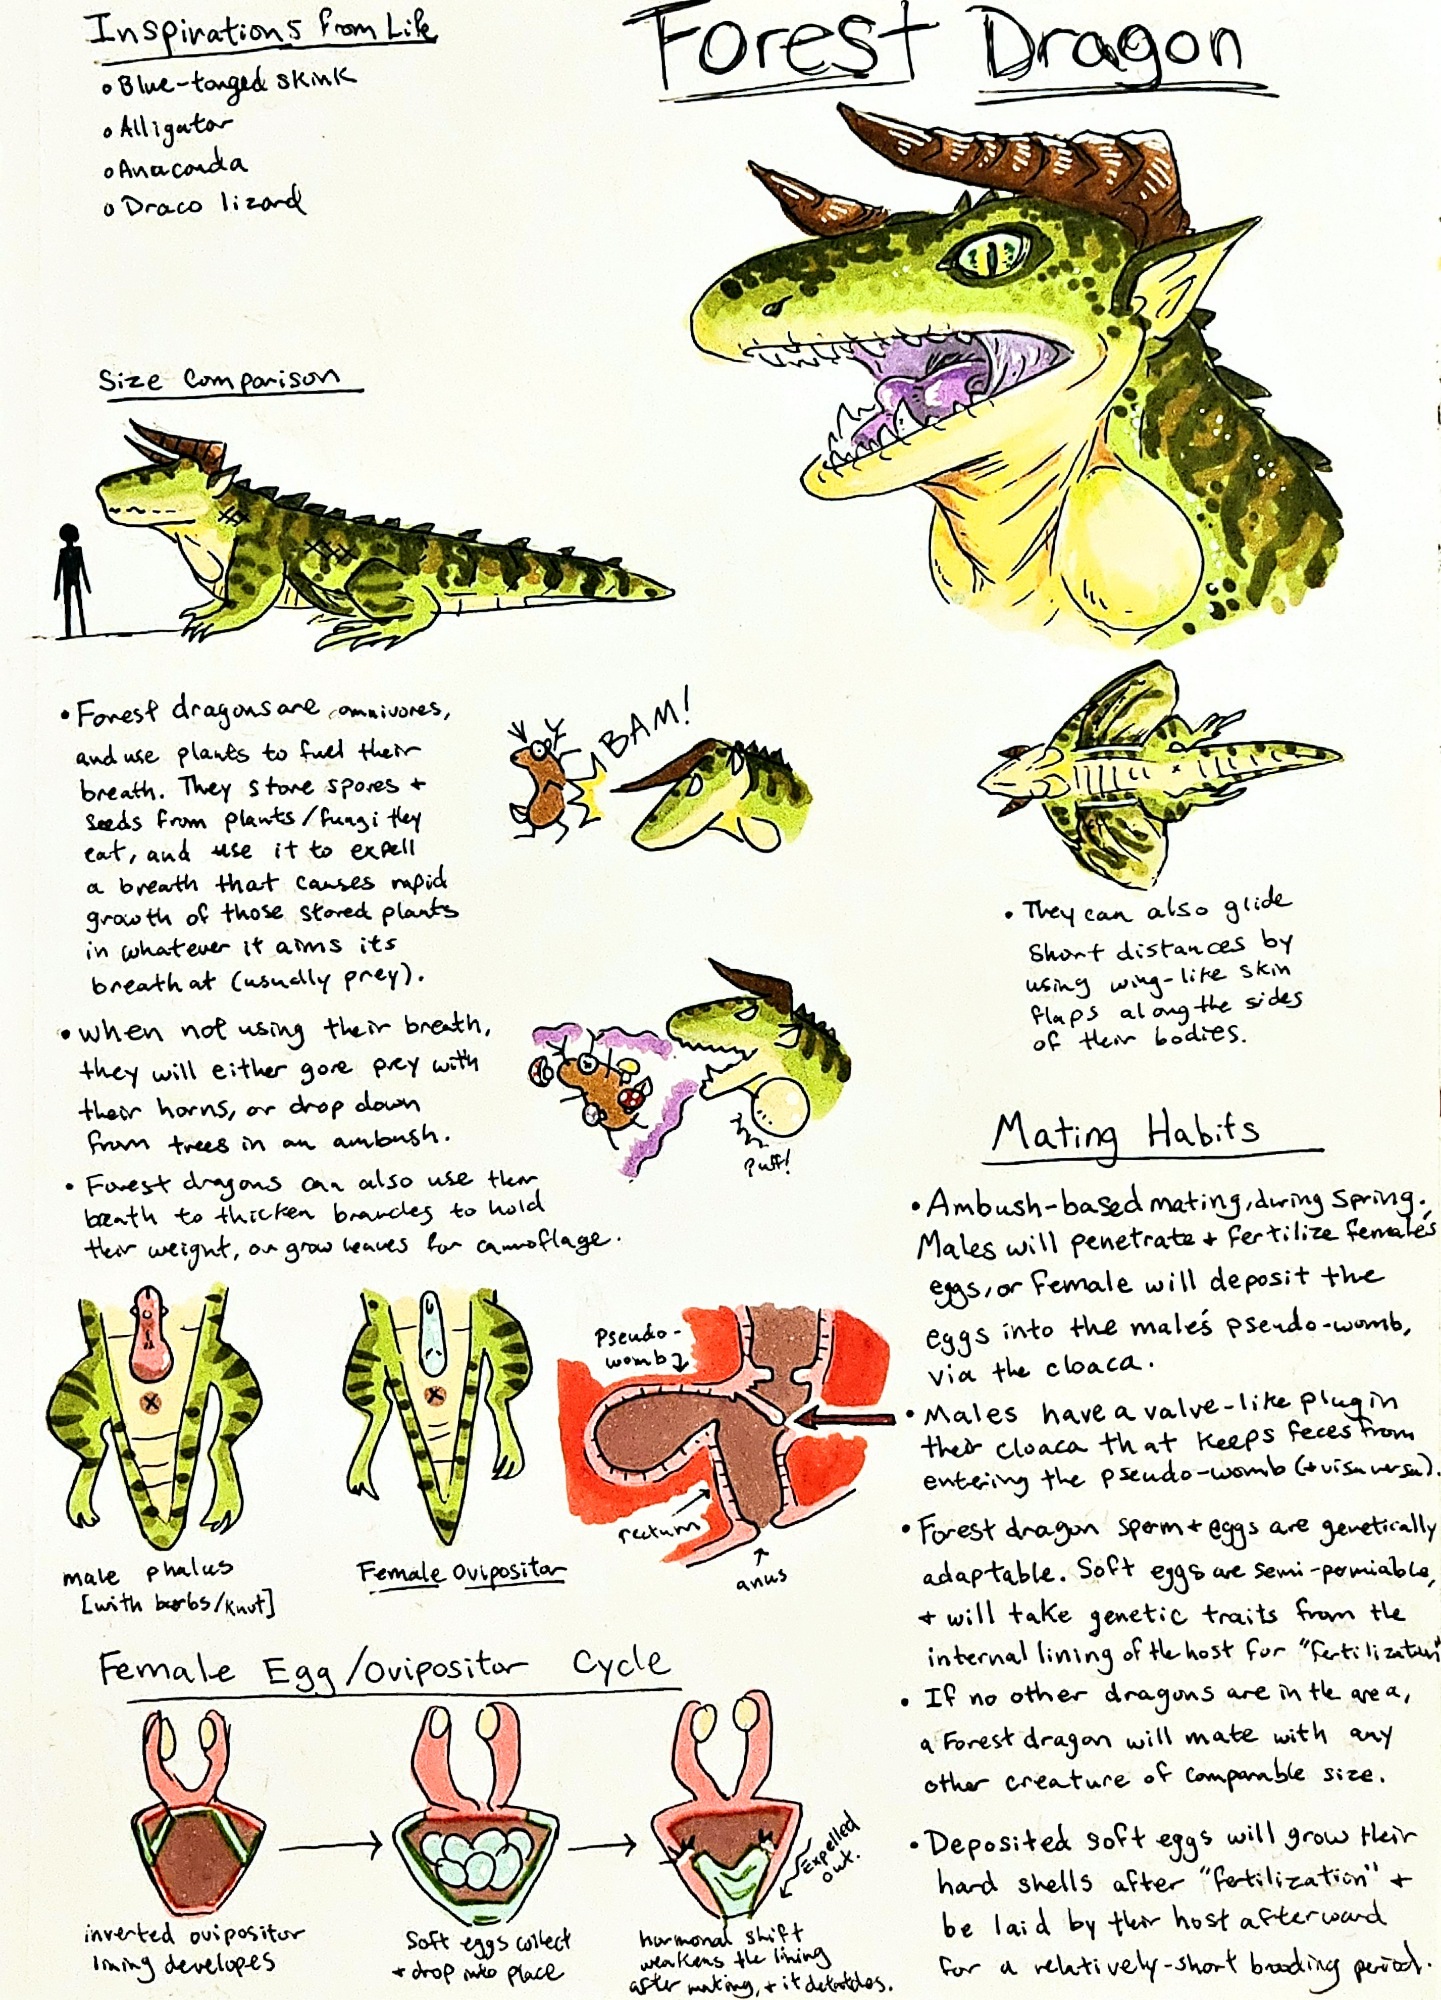 Inspirations from Life
Forest Dragon
o Blue-tonged skink
o Alligator
o Anaconda
o Draco lizard
Size Comparison
• Forest dragons are omnivores,
and use plants to fuel their
breath. They store spores +
seeds from plants/fungi they
eat, and use it to expell
a breath that causes rapid
growth of those stored plants
in whatever it aims its
breath at (usually prey).
• When not using their breath,
they will either gore prey with
their horns, or drop down
from trees in an ambush.
• Forest dragons can also use their
breath to thicken branches to hold
their weight, or grow leaves for camoflage.
BAM!
Puff!
• They can also glide
short distances by
using wing-like skin
flaps along the sides
of their bodies.
Mating Habits
• Ambush-based mating, during Spring.
Males will penetrate + fertilize female's
eggs, or female will deposit the
eggs into the male's pseudo-womb,
via the cloaca.
• Males have a valve-like plug in
their cloaca that keeps feces from
entering the pseudo-womb (+ visa versa).
• Forest dragon sperm + eggs are genetically
adaptable. Soft eggs are semi-permiable,
+ will take genetic traits from the
internal lining of the host for "fertilization"
• If no other dragons are in the area,
a Forest dragon will mate with any
other creature of comparable size.
• Deposited soft eggs will grow their
hard shells after "fertilization" +
be laid by their host afterward
for a relatively-short brooding period.
male phalus
[with barbs/knot]
Female Ovipositor
Pseudo-
womb
rectum
anus
Female Egg/Ovipositor Cycle
inverted ovipositor
lining developes
Soft eggs collect
+ drop into place
Expelled
out.
hormonal shift
weakens the lining
after mating, + it detatches.